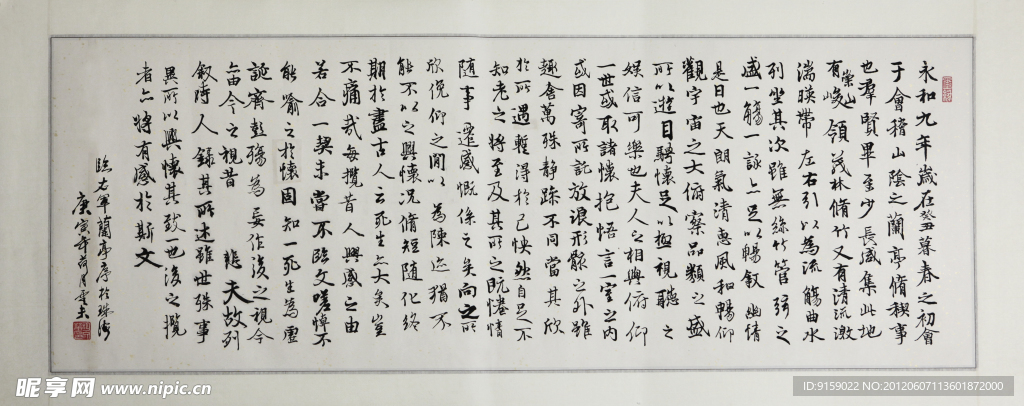 永和九年歲在癸丑暮春之初會
于會稽山陰之蘭亭脩稧事
也羣賢畢至少長咸集此地
有崇山峻領茂林脩竹又有清流激
湍暎帶左右引以為流觴曲水
列坐其次雖無絲竹管弦之
盛一觴一詠亦足以暢敘幽情
是日也天朗氣清惠風和暢仰
觀宇宙之大俯察品類之盛
所以遊目騁懷足以極視聽之
娛信可樂也夫人之相與俯仰
一世或取諸懷抱悟言一室之內
或因寄所託放浪形骸之外雖
趣舍萬殊靜躁不同當其欣
於所遇輕得於己快然自足不
知老之將至及其所之既惓情
隨事遷感慨係之矣向之所
欣俛仰之間以為陳迹猶不
能不以之興懷况脩短隨化終
期於盡古人云死生亦大矣豈
不痛哉每攬昔人興感之由
若合一契未嘗不臨文嗟悼不
能喻之於懷固知一死生為虛
誕齊彭殤為妄作後之視今
亦由今之視昔悲夫故列
敘時人錄其所述雖世殊事
異所以興懷其致一也後之攬
者亦將有感於斯文
臨右軍蘭亭序於珠海
庚寅年荷月
昵享网 www.nipic.cn
ID:9159022 NO:20120607113601872000